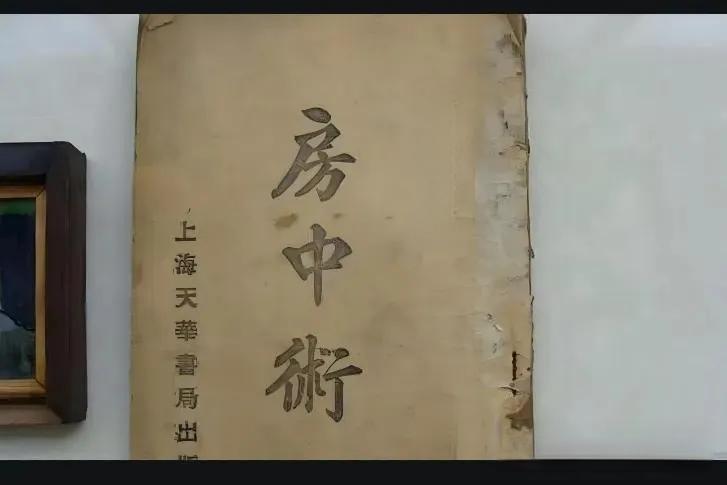 房中術
上海天華書局出版